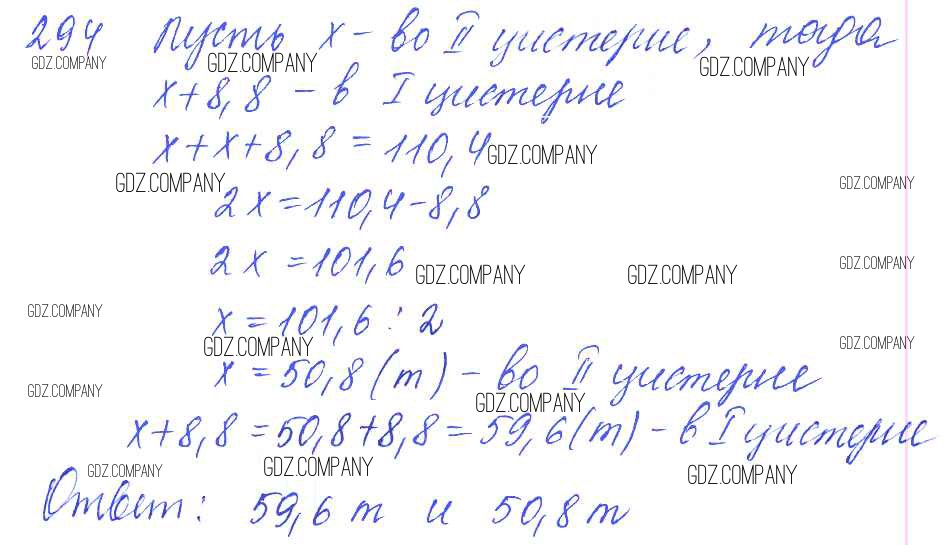 294 Пусть x - во II цистерне, тогда
GDZ.COMPANY GDZ.COMPANY GDZ.COMPANY
x+8,8 - в I цистерне
x+x+8,8=110,4 GDZ.COMPANY
GDZ.COMPANY GDZ.COMPANY
2x=110,4-8,8
2x=101,6 GDZ.COMPANY GDZ.COMPANY GDZ.COMPANY
GDZ.COMPANY
x=101,6:2
GDZ.COMPANY GDZ.COMPANY
x=50,8(т) - во II цистерне
GDZ.COMPANY GDZ.COMPANY
x+8,8=50,8+8,8=59,6(т) - в I цистерне
GDZ.COMPANY GDZ.COMPANY GDZ.COMPANY
Ответ: 59,6 т и 50,8 т